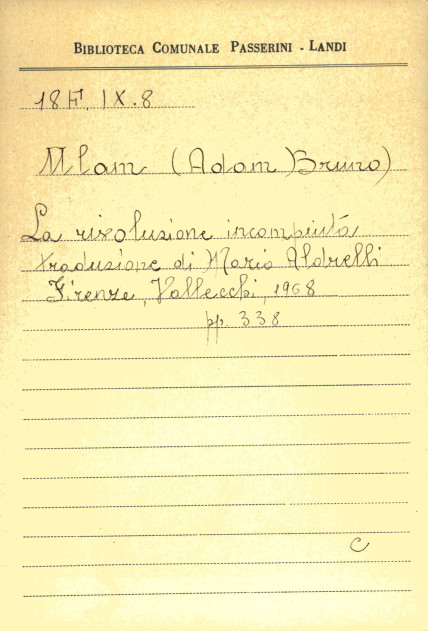 BIBLIOTECA COMUNALE PASSERINI - LANDI
18F. IX. 8
Ulam (Adam Bruno)
La rivoluzione incompiuta
traduzione di Mario Aldrelli
Firenze, Vallecchi, 1968
pp. 338
C